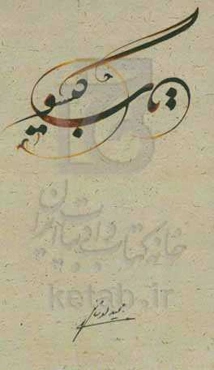 تاب گیسو
خانه کتاب و ادبیات ایران
ketab.ir